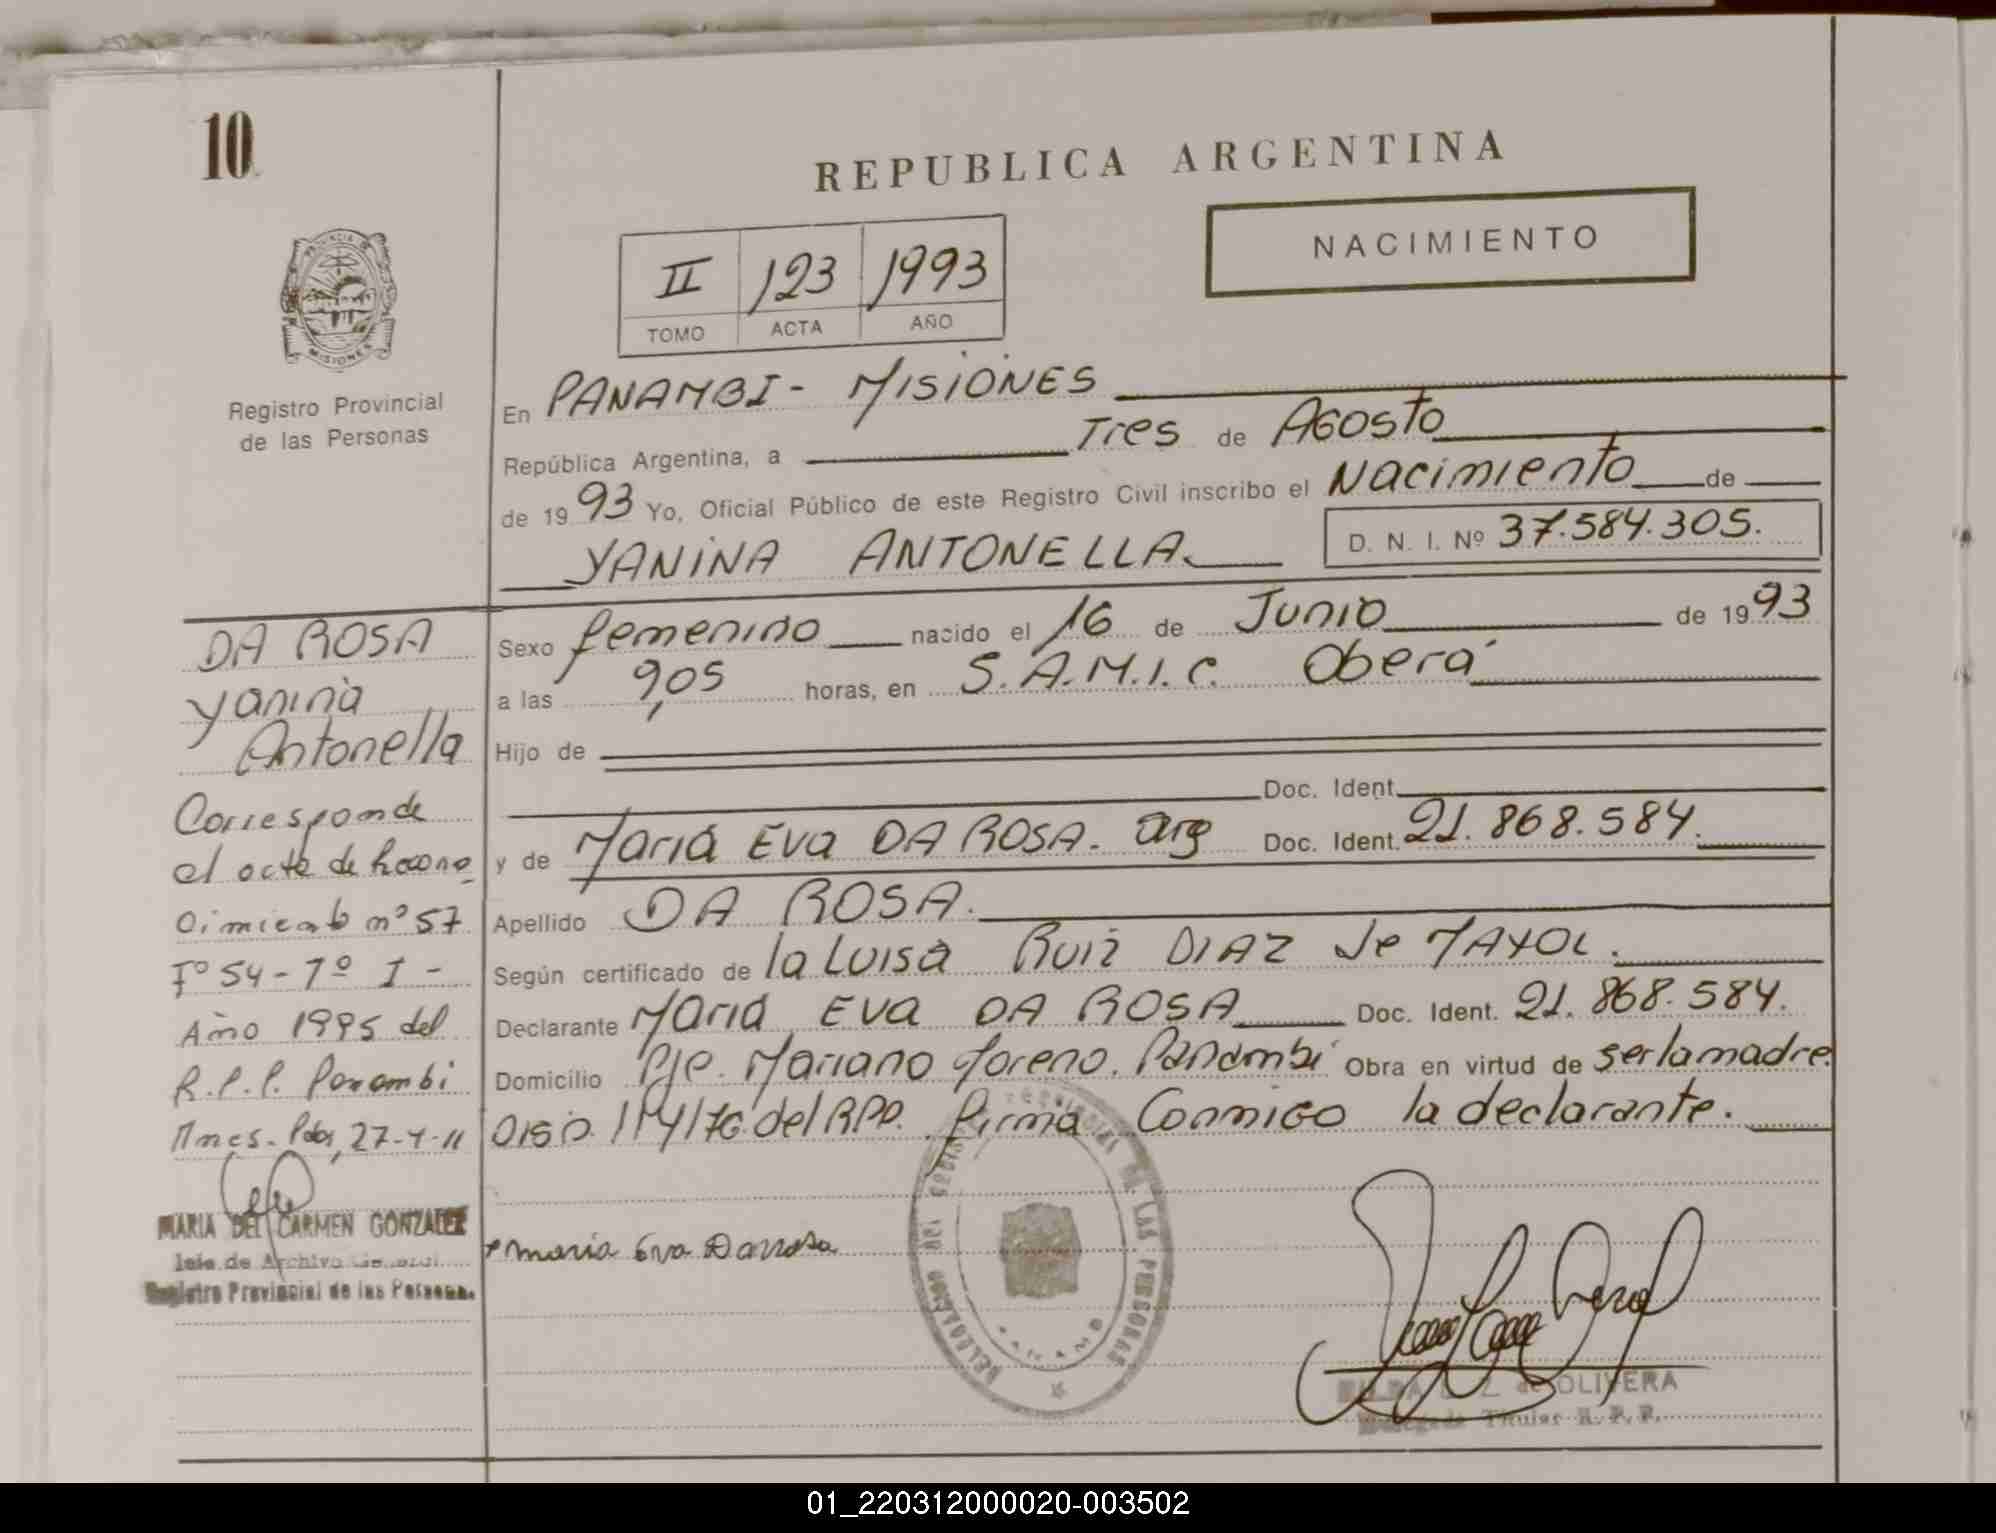 10
REPUBLICA ARGENTINA
NACIMIENTO
II 123 1993
TOMO ACTA AÑO
PROVINCIA DE
MISIONES
Registro Provincial
de las Personas
En PANAMBI - MISIONES
República Argentina, a Tres de AGOSTO
de 1993 Yo, Oficial Público de este Registro Civil inscribo el Nacimiento de
YANINA ANTONELLA D. N. I. Nº 37.584.305.
Sexo femenino nacido el 16 de JUNIO de 1993
a las 9,05 horas, en S.A.M.I.C. Oberá
Hijo de
Doc. Ident.
y de María Eva DA ROSA. arg Doc. Ident. 21.868.584.
Apellido DA ROSA.
Según certificado de la Luisa Ruiz DIAZ de MAYOL.
Declarante María EVa DA ROSA Doc. Ident. 21.868.584.
Domicilio Pje. Mariano Moreno. Panambí Obra en virtud de ser la madre.
Disp. 114/76 del RPP. firma Conmigo la declarante.
DA ROSA
Yanina
Antonella
Corresponde
el acta de recono
cimiento nº 57
Fº 54 - Tº I -
Año 1995 del
R.P.P. Panambi
Mnes. Pdas, 27-4-11
MARIA DEL CARMEN GONZALEZ
Jefe de Archivo General
Registro Provincial de las Personas
Maria Eva Darrosa
REGISTRO PROVINCIAL DE LAS PERSONAS
PANAMBI
de OLIVERA
Delegada Titular R. P. P.
01_220312000020-003502